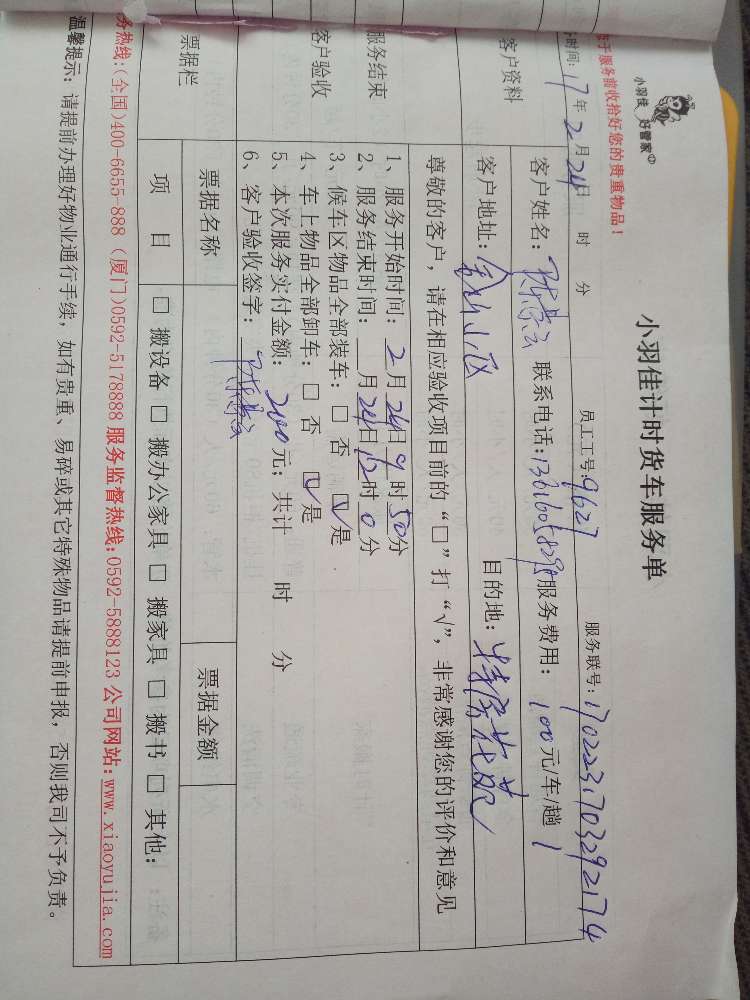 小羽佳 好管家
小羽佳计时货车服务单
于服务前收拾好您的贵重物品！
时间：17年2月24日 时 分 员工工号：9627 服务联号：1702231703292174
客户资料
客户姓名： 联系电话：服务费用：100元/车/趟 1
客户地址：金山小区 目的地：特房
尊敬的客户，请在相应验收项目前的“□”打“√”，非常感谢您的评价和意见
服务结束
客户验收
1、服务开始时间：2月24日9时50分
2、服务结束时间：__月24日12时0分
3、候车区物品全部装车：□ 否 ☑是
4、车上物品全部卸车：□ 否 ☑是
5、本次服务实付金额：200元；共计 时 分
6、客户验收签字：
票据栏
票据名称 票据金额
项 目 □ 搬设备 □ 搬办公家具 □ 搬家具 □ 搬书 □ 其他：
务热线：(全国)400-6655-888 (厦门)0592-5178888 服务监督热线：0592-5888123 公司网站：www.xiaoyujia.com
温馨提示：请提前办理好物业通行手续，如有贵重、易碎或其它特殊物品请提前申报，否则我司不予负责。